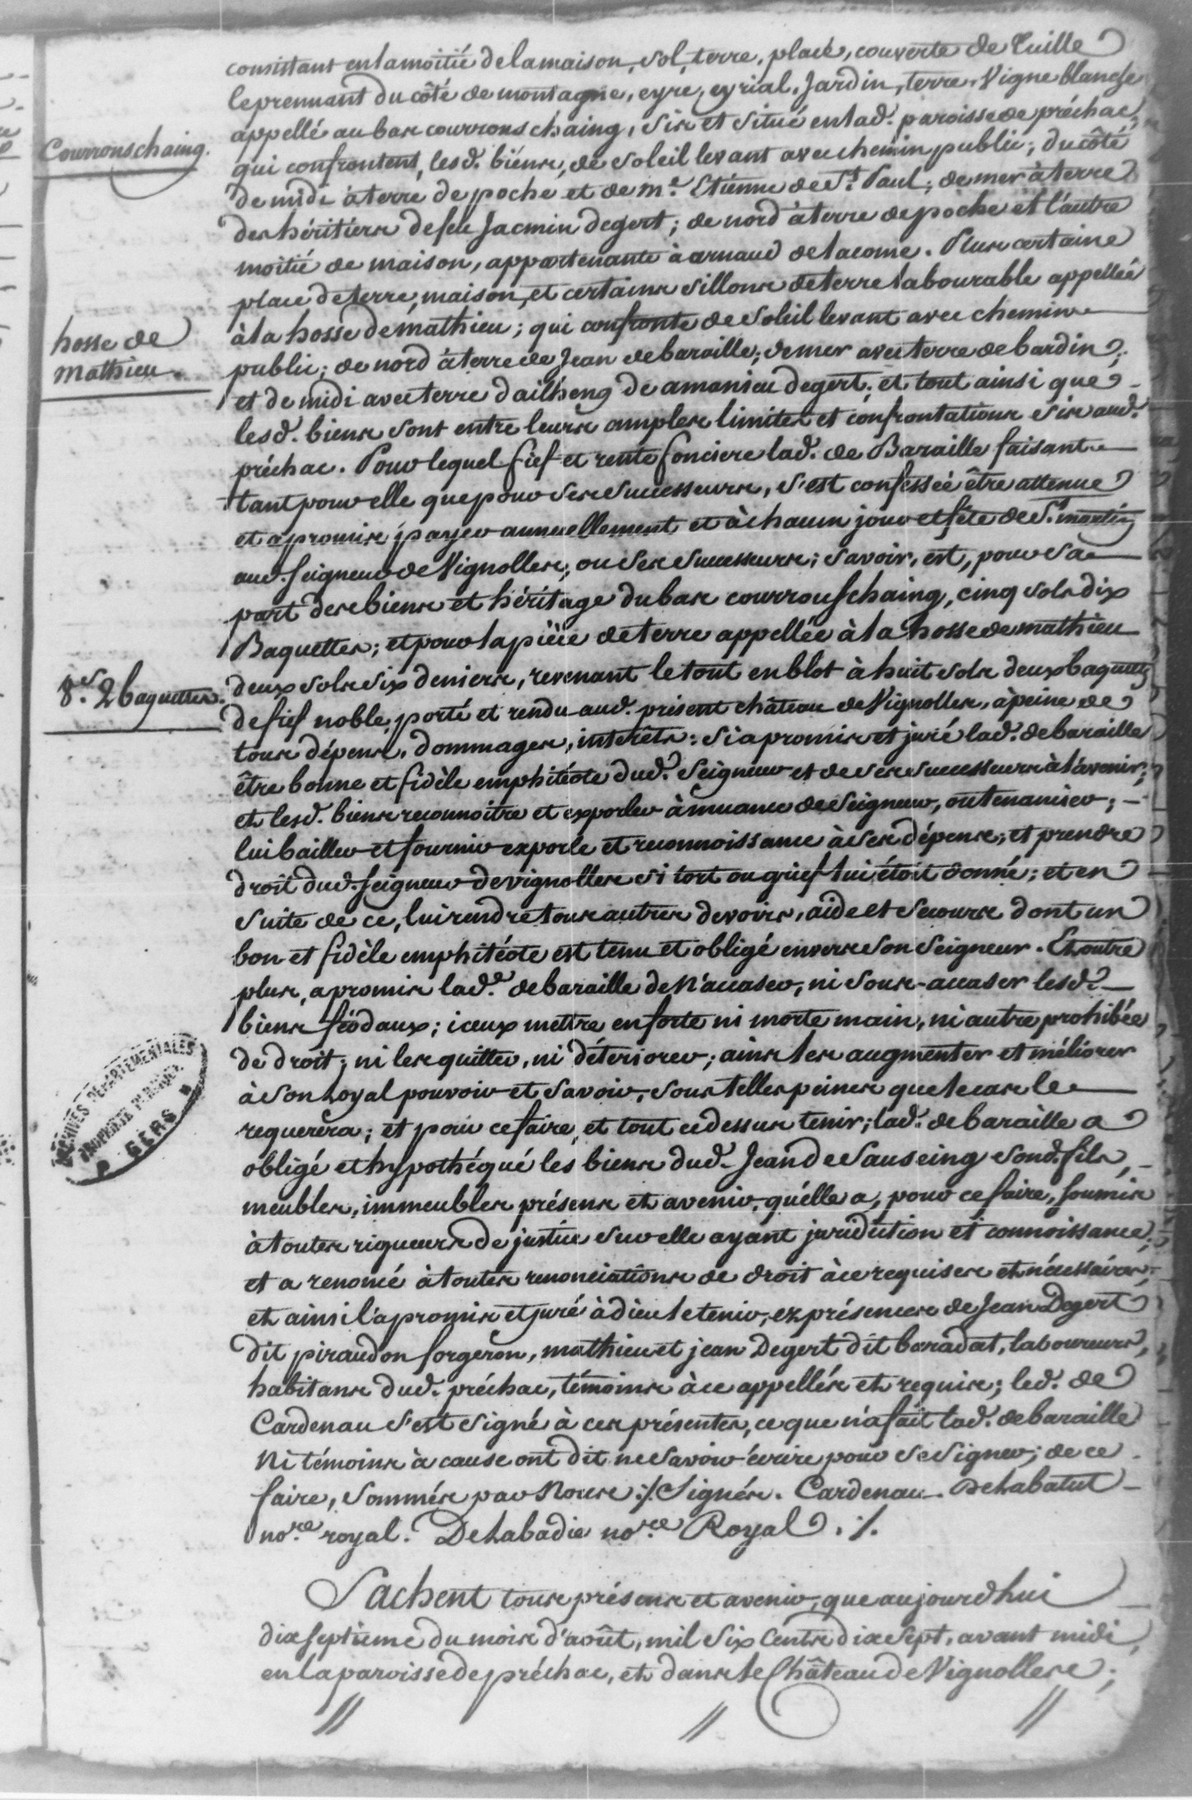 consistant en la moitié de la maison, sol, terre, place, couverte de tuille
le prennant du côté de montagne, eyre, eyrial, Jardin, terre, Vigne blanche
appellé au bas courronschaing, sis et situé en lad. paroisse de préchac,
Courronschaing.
qui confrontent, lesd. biéns, de soleil levant avec chemin public; du côté
de midi à terre de poche et de me. Etiénne de St. Paul; de mer à terre
des héritiers de feu Jacmin degert; de nord à terre de poche et l'autre
moitié de maison, appartenante à arnaud de lacome. Plus certaine
place de terre, maison, et certains sillons de terre labourable appellée
à la hosse de mathieu; qui confronte de soleil levant avec chemin
hosse de
Mathieu
public; de nord à terre de Jean de baraille; de mer avec terre de bardin;
et de midi avec terre d'ailheng de amanieu degert; et tout ainsi que
lesd. biens sont entre leurs amples limites et confrontations sis aud.
préchac. Pour lequel fief et rente fonciere lad. de Baraille faisant
tant pour elle que pour ses successeurs, s'est confessée être attenue
et a promis payer annuellement et à chacun jour et fête de St. martin
aud. seigneur de Vignolles, ou ses successeurs; savoir, est, pour sa
part des biens et héritage du bas courrouschaing, cinq sols dix
Baquettes; et pour la pièce de terre appellée à la hosse de mathieu
deux sols six deniers, revenant le tout en blot à huit sols deux baquettes
8s. 2 baquettes.
de fief noble, porté et rendu aud. présent château de Vignolles, à peine de
tous dépens, dommages, interets: si a promis et juré lad. de baraille
être bonne et fidèle emphitéote dud. Seigneur et de ses successeurs à l'avenir;
et lesd. biens reconnoitre et exporler à muance de seigneur, ou tenancier;
lui bailler et fournir exporle et reconnoissance à ses dépens; et prendre
droit dud. seigneur de vignolles si tort ou grief lui étoit donné; et en
suite de ce, lui rendre tous autres devoirs, aide et secours dont un
bon et fidèle emphitéote est tenu et obligé envers son seigneur. Et outre
plus, a promis lad. de baraille de N'accaser, ni sous-accaser lesd.
biens féodaux; iceux mettre en forte ni morte main, ni autre prohibée
de droit; ni les quitter, ni déteriorer; ains les augmenter et méliorer
à son loyal pouvoir et savoir, sous telles peines que le cas le
requerera; et pour ce faire, et tout ce dessus tenir; lad. de baraille a
obligé et hypothéqué les biens dud. Jean de Sauseing son d. fils,
meubles, immeubles présens et avenir, qu'elle a, pour ce faire, soumis
à toutes rigueurs de justice sur elle ayant juridiction et connoissance;
et a renoncé à toutes renonciations de droit à ce requises et nécessaires;
et ainsi l'a promis et juré à dieu le tenir, ez présences de Jean Degert
dit piraudon forgeron, mathieu et jean Degert dit baradat, laboureurs,
habitans dud. préchac, témoins à ce appellés et requis; led. de
Cardenau s'est signé à ces présentes, ce que n'a fait lad. de baraille
Ni témoins à cause ont dit ne savoir écrire pour se signer; de ce
faire, sommés par Nous :/. Signés. Cardenau. Delabatut
nore. royal. Delabadie nore. Royal ./.
Sachent tous présens et avenir, que aujourd'hui
dix septieme du mois d'août, mil six cents dix sept, avant midi
en la paroisse de préchac, et dans le Château de Vignolles;
ARCHIVES DÉPARTEMENTALES
PROPRIÉTÉ PUBLIQUE
GERS